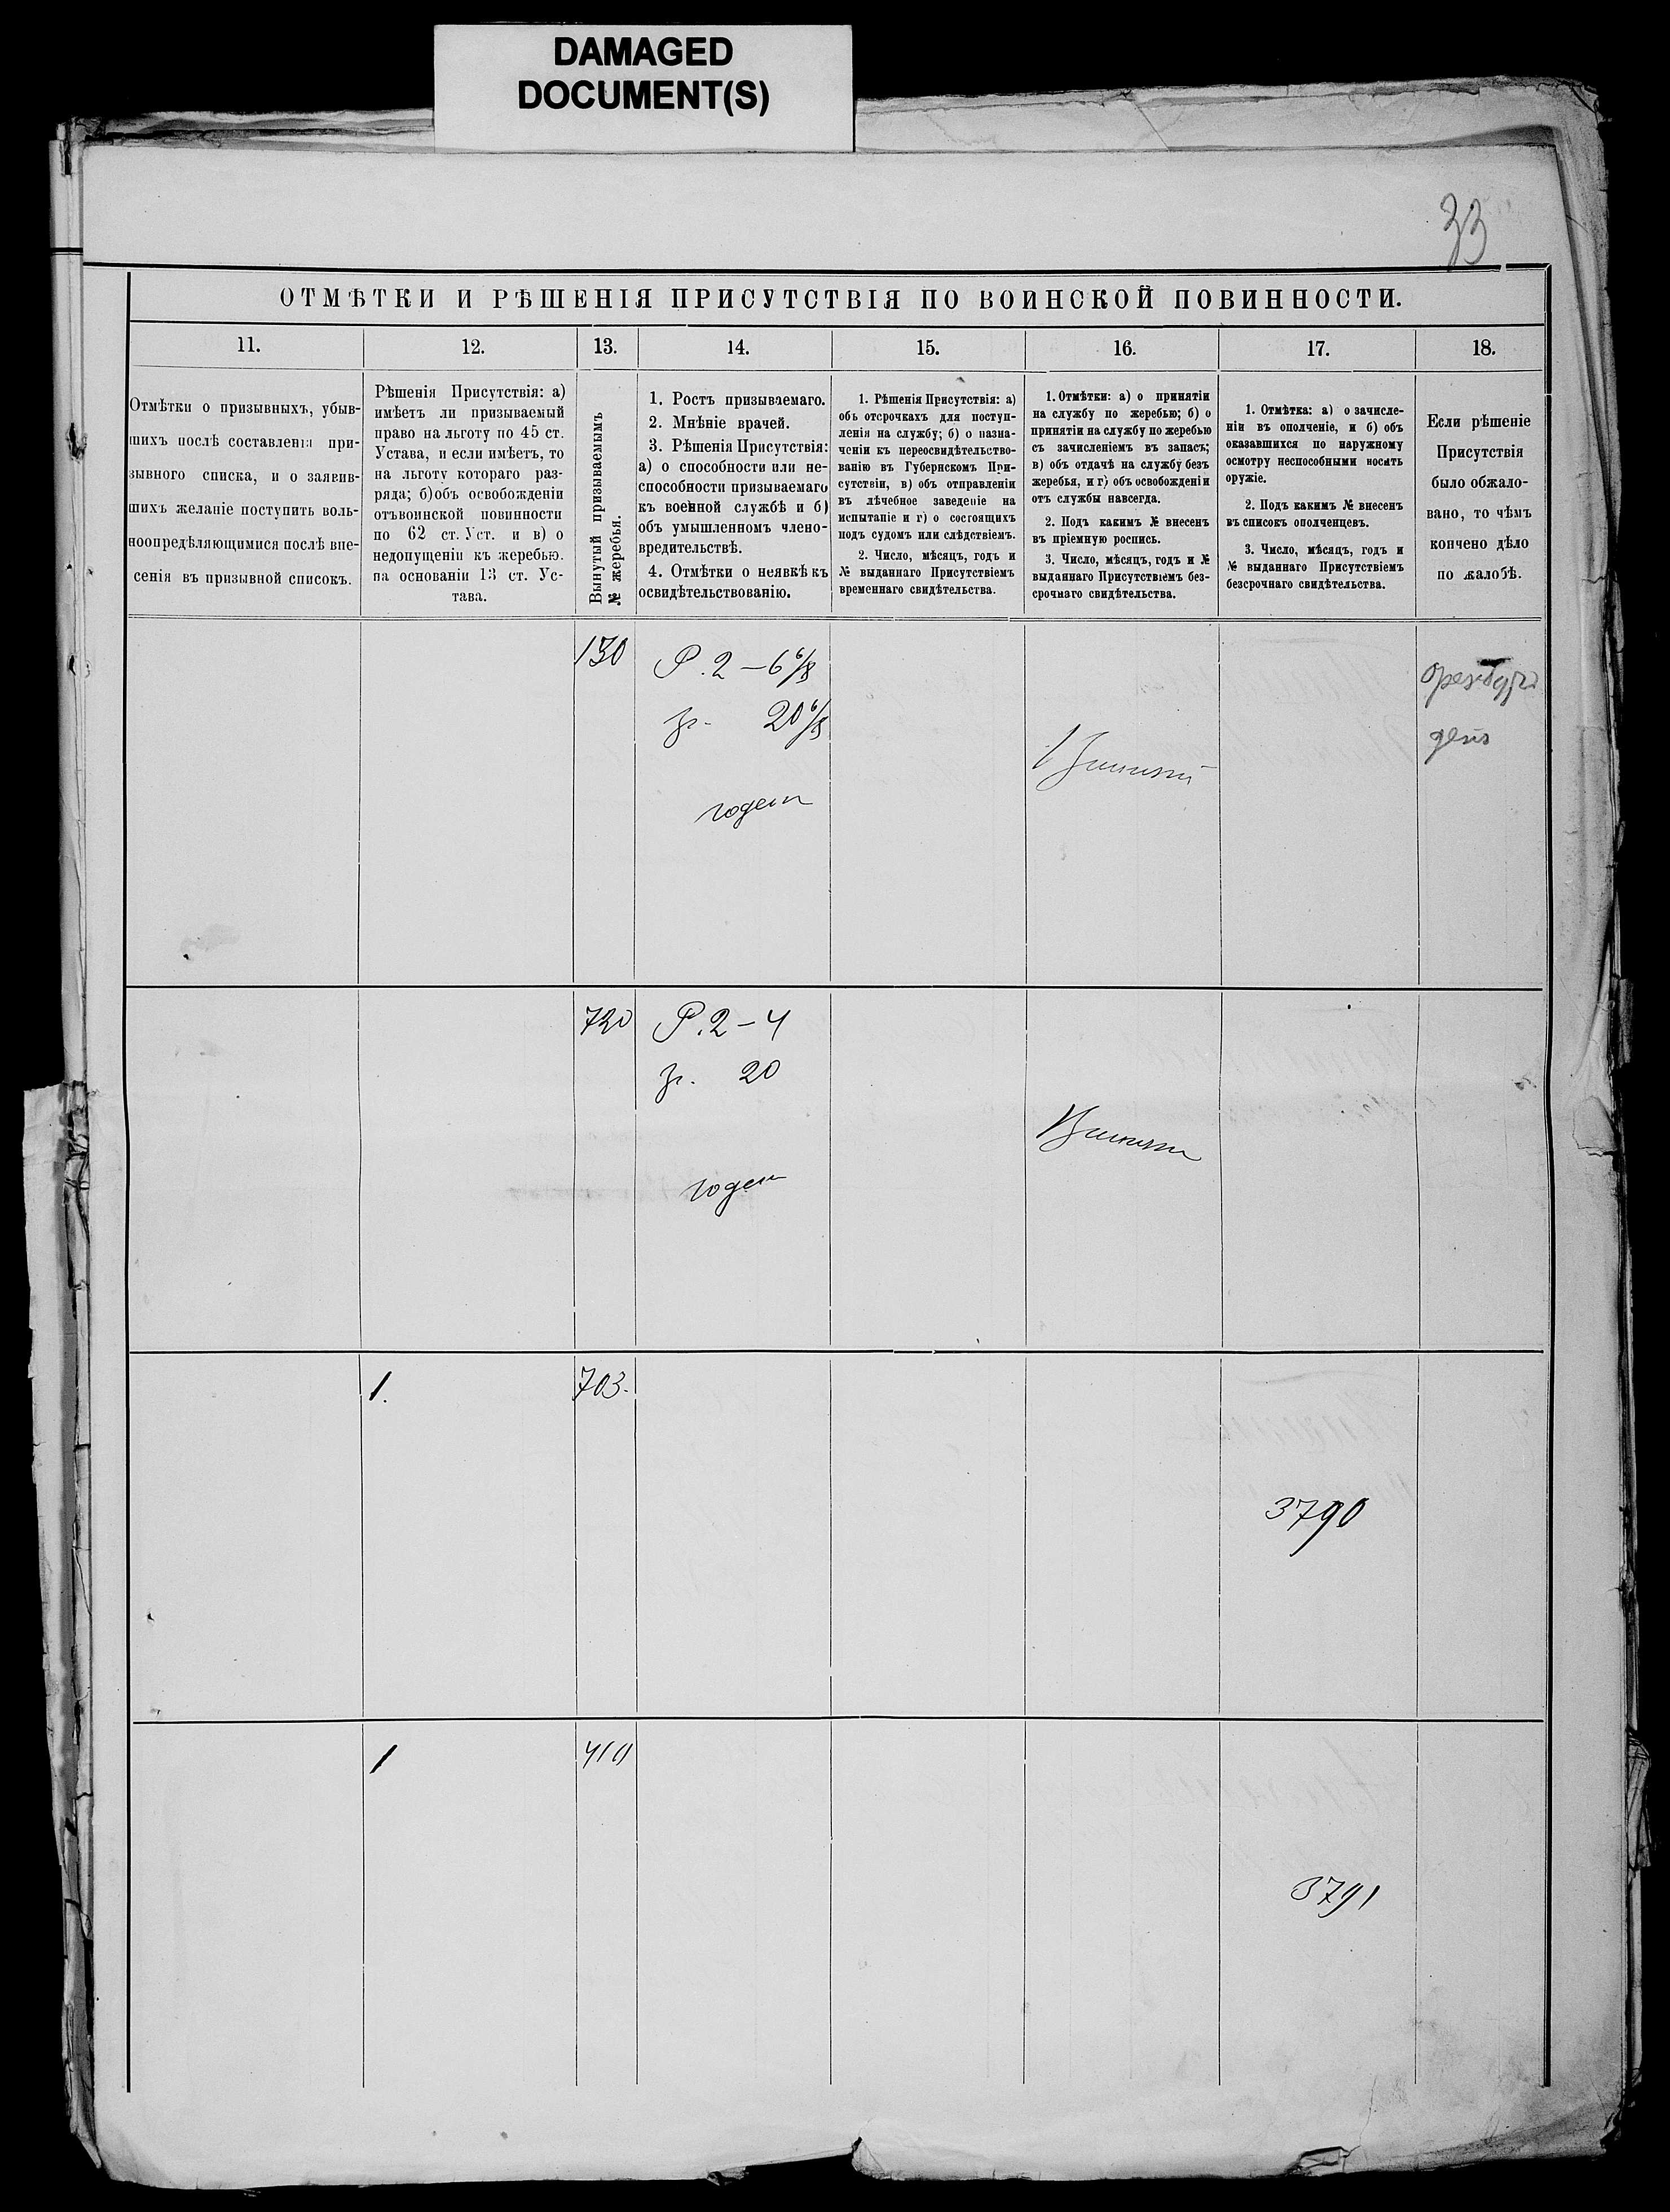 DAMAGED
DOCUMENT(S)
33
ОТМѢТКИ И РѢШЕНІЯ ПРИСУТСТВІЯ ПО ВОИНСКОЙ ПОВИННОСТИ.
11.
12.
13.
14.
15.
16.
17.
18.
Отмѣтки о призывныхъ, убыв-
шихъ послѣ составленія при-
зывного списка, и о заявив-
шихъ желаніе поступить воль-
ноопредѣляющимися послѣ вне-
сенія въ призывной списокъ.
Рѣшенія Присутствія: а)
имѣетъ ли призываемый
право на льготу по 45 ст.
Устава, и если имѣетъ, то
на льготу котораго раз-
ряда; б) объ освобожденіи
отъ воинской повинности
по 62 ст. Уст. и в) о
недопущеніи къ жеребью.
на основаніи 13 ст. Ус-
тава.
Вынутый призываемымъ
№ жеребья.
1. Ростъ призываемаго.
2. Мнѣніе врачей.
3. Рѣшенія Присутствія:
а) о способности или не-
способности призываемаго
къ военной службѣ и б)
объ умышленномъ члено-
вредительствѣ.
4. Отмѣтки о неявкѣ къ
освидѣтельствованію.
1. Рѣшенія Присутствія: а)
объ отсрочкахъ для поступ-
ленія на службу; б) о назна-
ченіи къ переосвидѣтельство-
ванію въ Губернскомъ При-
сутствіи, в) объ отправленіи
въ лѣчебное заведеніе на
испытаніе и г) о состоящихъ
подъ судомъ или слѣдствіемъ.
2. Число, мѣсяцъ, годъ и
№ выданнаго Присутствіемъ
временнаго свидѣтельства.
1. Отмѣтки: а) о принятіи
на службу по жеребью; б) о
принятіи на службу по жеребью
съ зачисленіемъ въ запасъ;
в) объ отдачѣ на службу безъ
жеребья, и г) объ освобожденіи
отъ службы навсегда.
2. Подъ какимъ № внесенъ
въ пріемную роспись.
3. Число, мѣсяцъ, годъ и №
выданнаго Присутствіемъ без-
срочнаго свидѣтельства.
1. Отмѣтка: а) о зачисле-
ніи въ ополченіе, и б) объ
оказавшихся по наружному
осмотру неспособными носить
оружіе.
2. Подъ какимъ № внесенъ
въ списокъ ополченцевъ.
3. Число, мѣсяцъ, годъ и
№ выданнаго Присутствіемъ
безсрочнаго свидѣтельства.
Если рѣшеніе
Присутствія
было обжало-
вано, то чѣмъ
кончено дѣло
по жалобѣ.
Р. 2 – 6 6/8
гр. 20 6/8
годен
720
Р. 2 – 4
гр. 20
годен
1.
703.
3790
1
3791